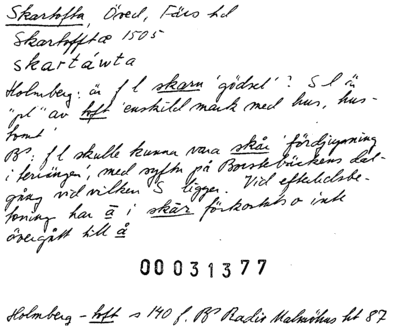 Skartofta, Öved, Färs hd
Skartofftæ 1505
skartawta
Holmberg: är f l skarn 'gödsel'? S l är
"pl" av toft 'enskild mark med hus, hus-
tomt'
BP: f l skulle kunna vara skår 'fördjupning
i terrängen', med syftn på Borstbäckens dal-
gång vid vilken S ligger. Vid efterledsbe-
toning har ā i skār förkortats o inte
övergått till å
00031377
Holmberg - toft s 140 f. BP Radio Malmöhus ht 87